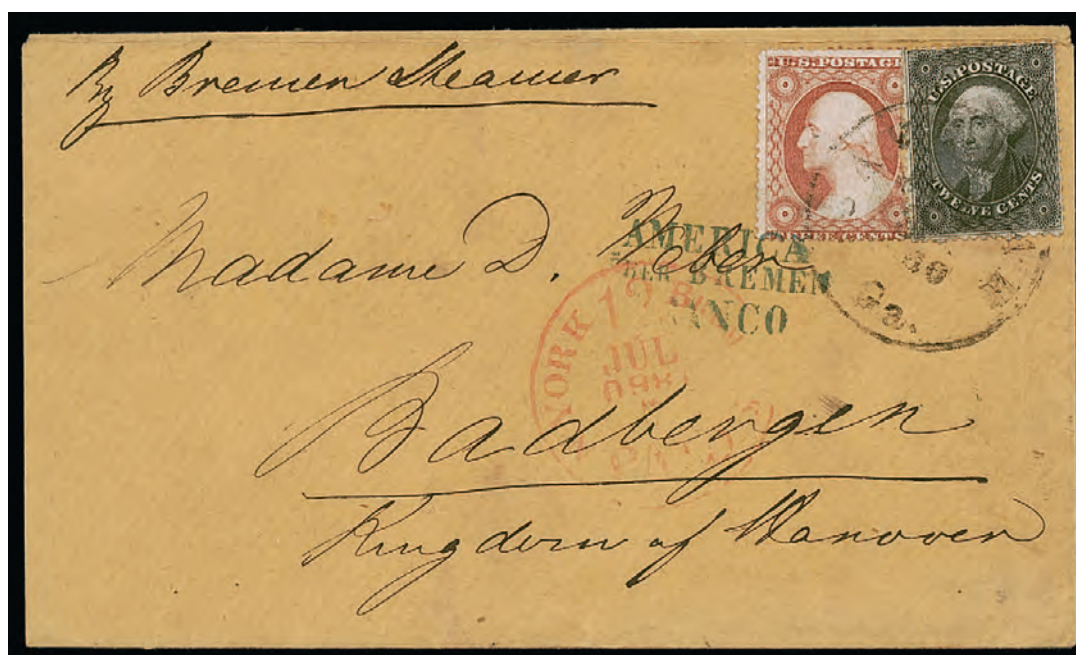 By Bremen Steamer
U.S. POSTAGE
THREE CENTS
U.S. POSTAGE
TWELVE CENTS
Madame D. Weber
AMERICA
BREMEN
YORK
JUL
Badbergen
Kingdom of Hanover